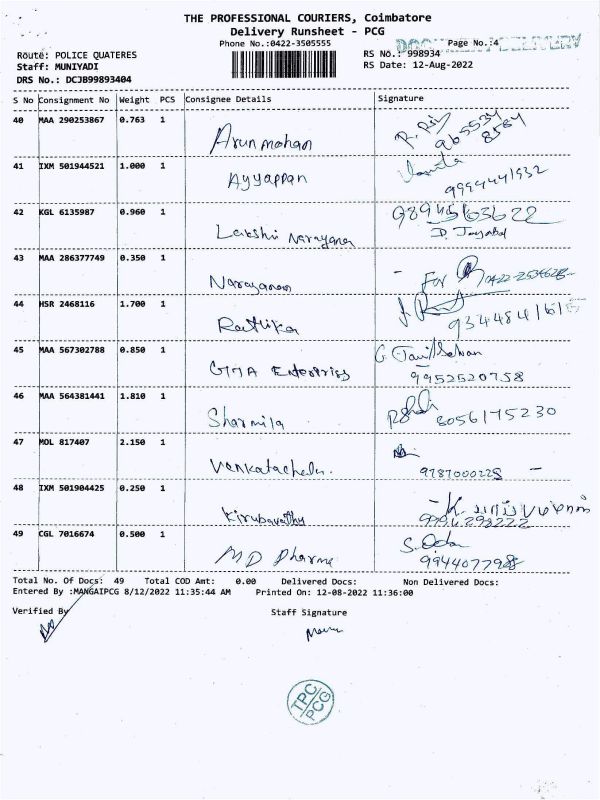 THE PROFESSIONAL COURIERS, Coimbatore
Delivery Runsheet - PCG
Phone No.:0422-3505555
Page No.:4
Route: POLICE QUATERES
RS No.: 998934
Staff: MUNIYADI
RS Date: 12-Aug-2022
DRS No.: DCJB99893404
S No Consignment No Weight PCS Consignee Details Signature
40 MAA 290253867 0.763 1 Arun mohan
41 IXM 501944521 1.000 1 Ayyappan 9994441932
42 KGL 6135987 0.960 1 Lakshmi Narayanan
43 MAA 286377749 0.350 1 Narayanan For
44 HSR 2468116 1.700 1 Rathika
45 MAA 567302788 0.850 1 Enterprises G. Tamil Selvan
9952520758
46 MAA 564381441 1.810 1 Sharmila 8056175230
47 MOL 817407 2.150 1 9787000225
48 IXM 501904425 0.250 1 Kirubavathy
49 CGL 7016674 0.500 1 MD Pharma
9944077988
Total No. Of Docs: 49 Total COD Amt: 0.00 Delivered Docs: Non Delivered Docs:
Entered By :MANGAIPCG 8/12/2022 11:35:44 AM Printed On: 12-08-2022 11:36:00
Verified By Staff Signature
TPC
PCG